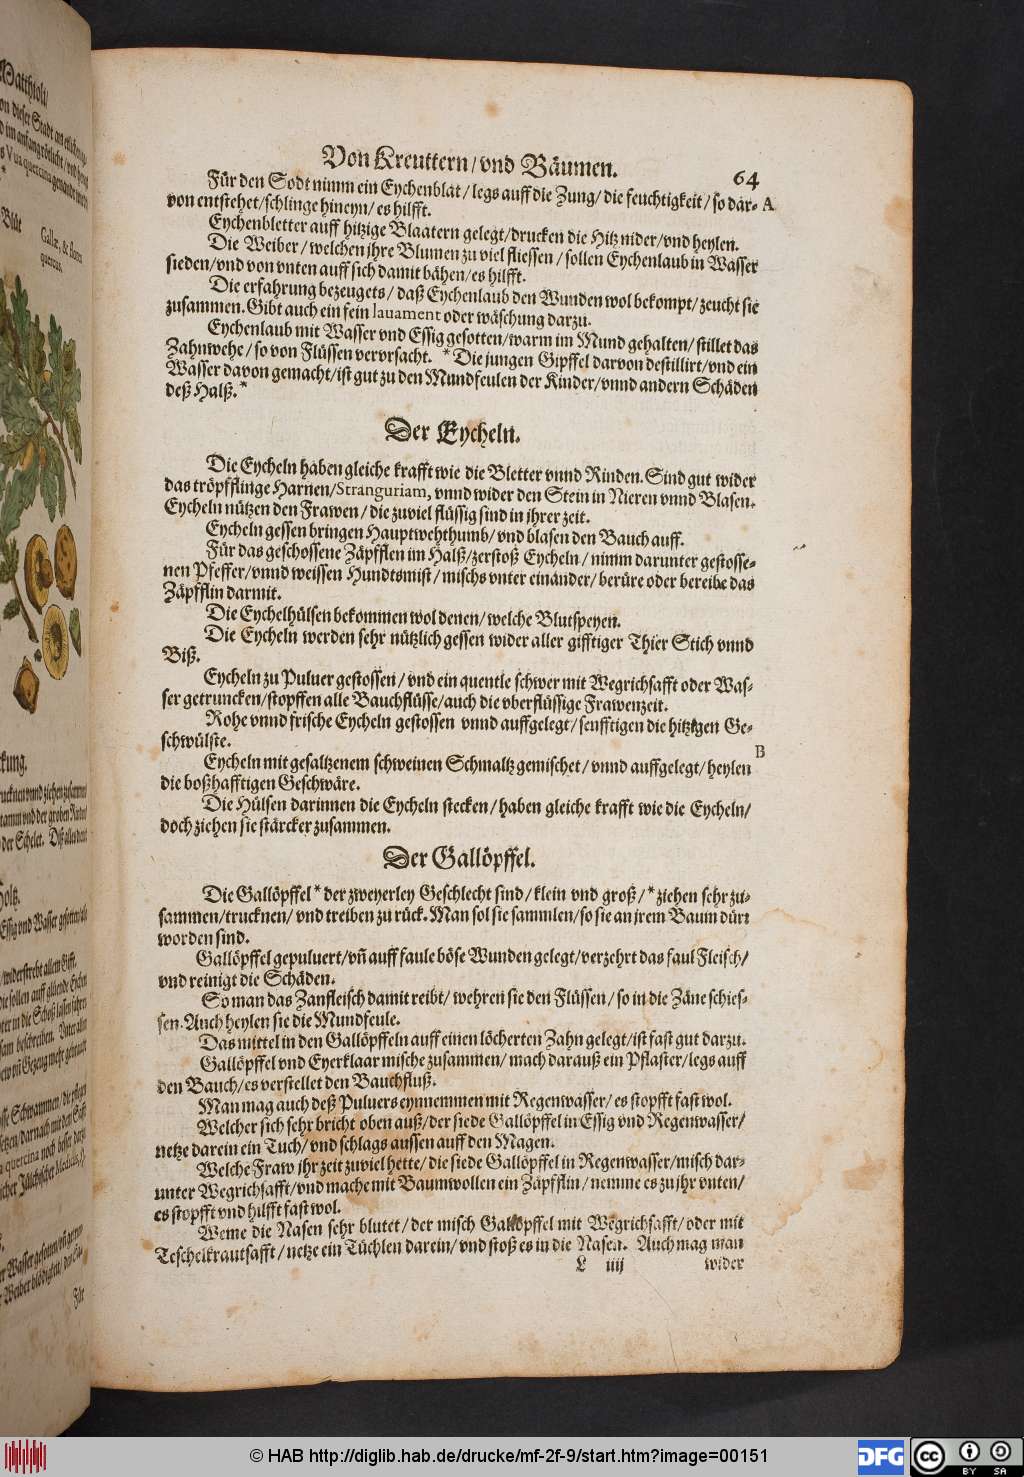 Von Kreuttern/vnd Bäumen.
64
Für den Sodt nimm ein Eychenblat/legs auff die Zung/die feuchtigkeit/so dar- A
von entstehet/schlinge hineyn/es hilfft.
Eychenbletter auff hitzige Blaatern gelegt/drucken die Hitz nider/vnd heylen.
Die Weiber/welchen jhre Blumen zu viel fliessen/sollen Eychenlaub in Wasser
sieden/vnd von vnten auff sich damit bähen/es hilfft.
Die erfahrung bezeugets/daß Eychenlaub den Wunden wol bekompt/zeucht sie
zusammen. Gibt auch ein fein lauament oder wäschung darzu.
Eychenlaub mit Wasser vnd Essig gesotten/warm im Mund gehalten/stillet das
Zahnwehe/so von Flüssen vervrsacht. *Die jungen Gipffel darvon destillirt/vnd ein
Wasser davon gemacht/ist gut zu den Mundfeulen der Kinder/vnnd andern Schäden
deß Halß.*
Der Eycheln.
Die Eycheln haben gleiche krafft wie die Bletter vnnd Rinden. Sind gut wider
das tröpfflinge Harnen/Stranguriam, vnnd wider den Stein in Nieren vnnd Blasen.
Eycheln nützen den Frawen/die zuviel flüssig sind in jhrer zeit.
Eycheln gessen bringen Hauptwehthumb/vnd blasen den Bauch auff.
Für das geschossene Zäpfflen im Halß/zerstoß Eycheln/nimm darunter gestosse-
nen Pfeffer/vnnd weissen Hundtsmist/mischs vnter einander/berüre oder bereibe das
Zäpfflin darmit.
Die Eychelhülsen bekommen wol denen/welche Blutspeyen.
Die Eycheln werden sehr nützlich gessen wider aller gifftiger Thier Stich vnnd
Biß.
Eycheln zu Puluer gestossen/vnd ein quentle schwer mit Wegrichsafft oder Was-
ser getruncken/stopffen alle Bauchflüsse/auch die vberflüssige Frawenzeit.
Rohe vnnd frische Eycheln gestossen vnnd auffgelegt/senfftigen die hitzigen Ge-
schwülste.
B
Eycheln mit gesaltzenem schweinen Schmaltz gemischet/vnnd auffgelegt/heylen
die boßhafftigen Geschwäre.
Die Hülsen darinnen die Eycheln stecken/haben gleiche krafft wie die Eycheln/
doch ziehen sie stärcker zusammen.
Der Gallöpffel.
Die Gallöpffel *der zweyerley Geschlecht sind/klein vnd groß/* ziehen sehr zu-
sammen/trucknen/vnd treiben zu rück. Man sol sie sammlen/so sie an jrem Baum dürr
worden sind.
Gallöpffel gepuluert/vn̄ auff faule böse Wunden gelegt/verzehrt das faul Fleisch/
vnd reinigt die Schäden.
So man das Zanfleisch damit reibt/wehren sie den Flüssen/so in die Zäne schies-
sen. Auch heylen sie die Mundfeule.
Das mittel in den Gallöpffeln auff einen löcherten Zahn gelegt/ist fast gut darzu.
Gallöpffel vnd Eyerklaar mische zusammen/mach darauß ein Pflaster/legs auff
den Bauch/es verstellet den Bauchfluß.
Man mag auch deß Puluers eynnemmen mit Regenwasser/es stopfft fast wol.
Welcher sich sehr bricht oben auß/der siede Gallöpffel in Essig vnd Regenwasser/
netze darein ein Tuch/vnd schlags aussen auff den Magen.
Welche Fraw ihr zeit zuviel hette/die siede Gallöpffel in Regenwasser/misch dar-
unter Wegrichsafft/vnd mache mit Baumwollen ein Zäpfflin/nemme es zu jhr vnten/
es stopfft vnd hilfft fast wol.
Weme die Nasen sehr blutet/der misch Gallöpffel mit Wegrichsafft/oder mit
Teschelkrautsafft/netze ein Tüchlen darein/vnd stoß es in die Nasen. Auch mag man
L iiij
wider
Matthioli/
Blüt
Gallæ, & flores
quercus.
ckung.
Holtz.
Für
© HAB http://diglib.hab.de/drucke/mf-2f-9/start.htm?image=00151
DFG
cc
BY
SA